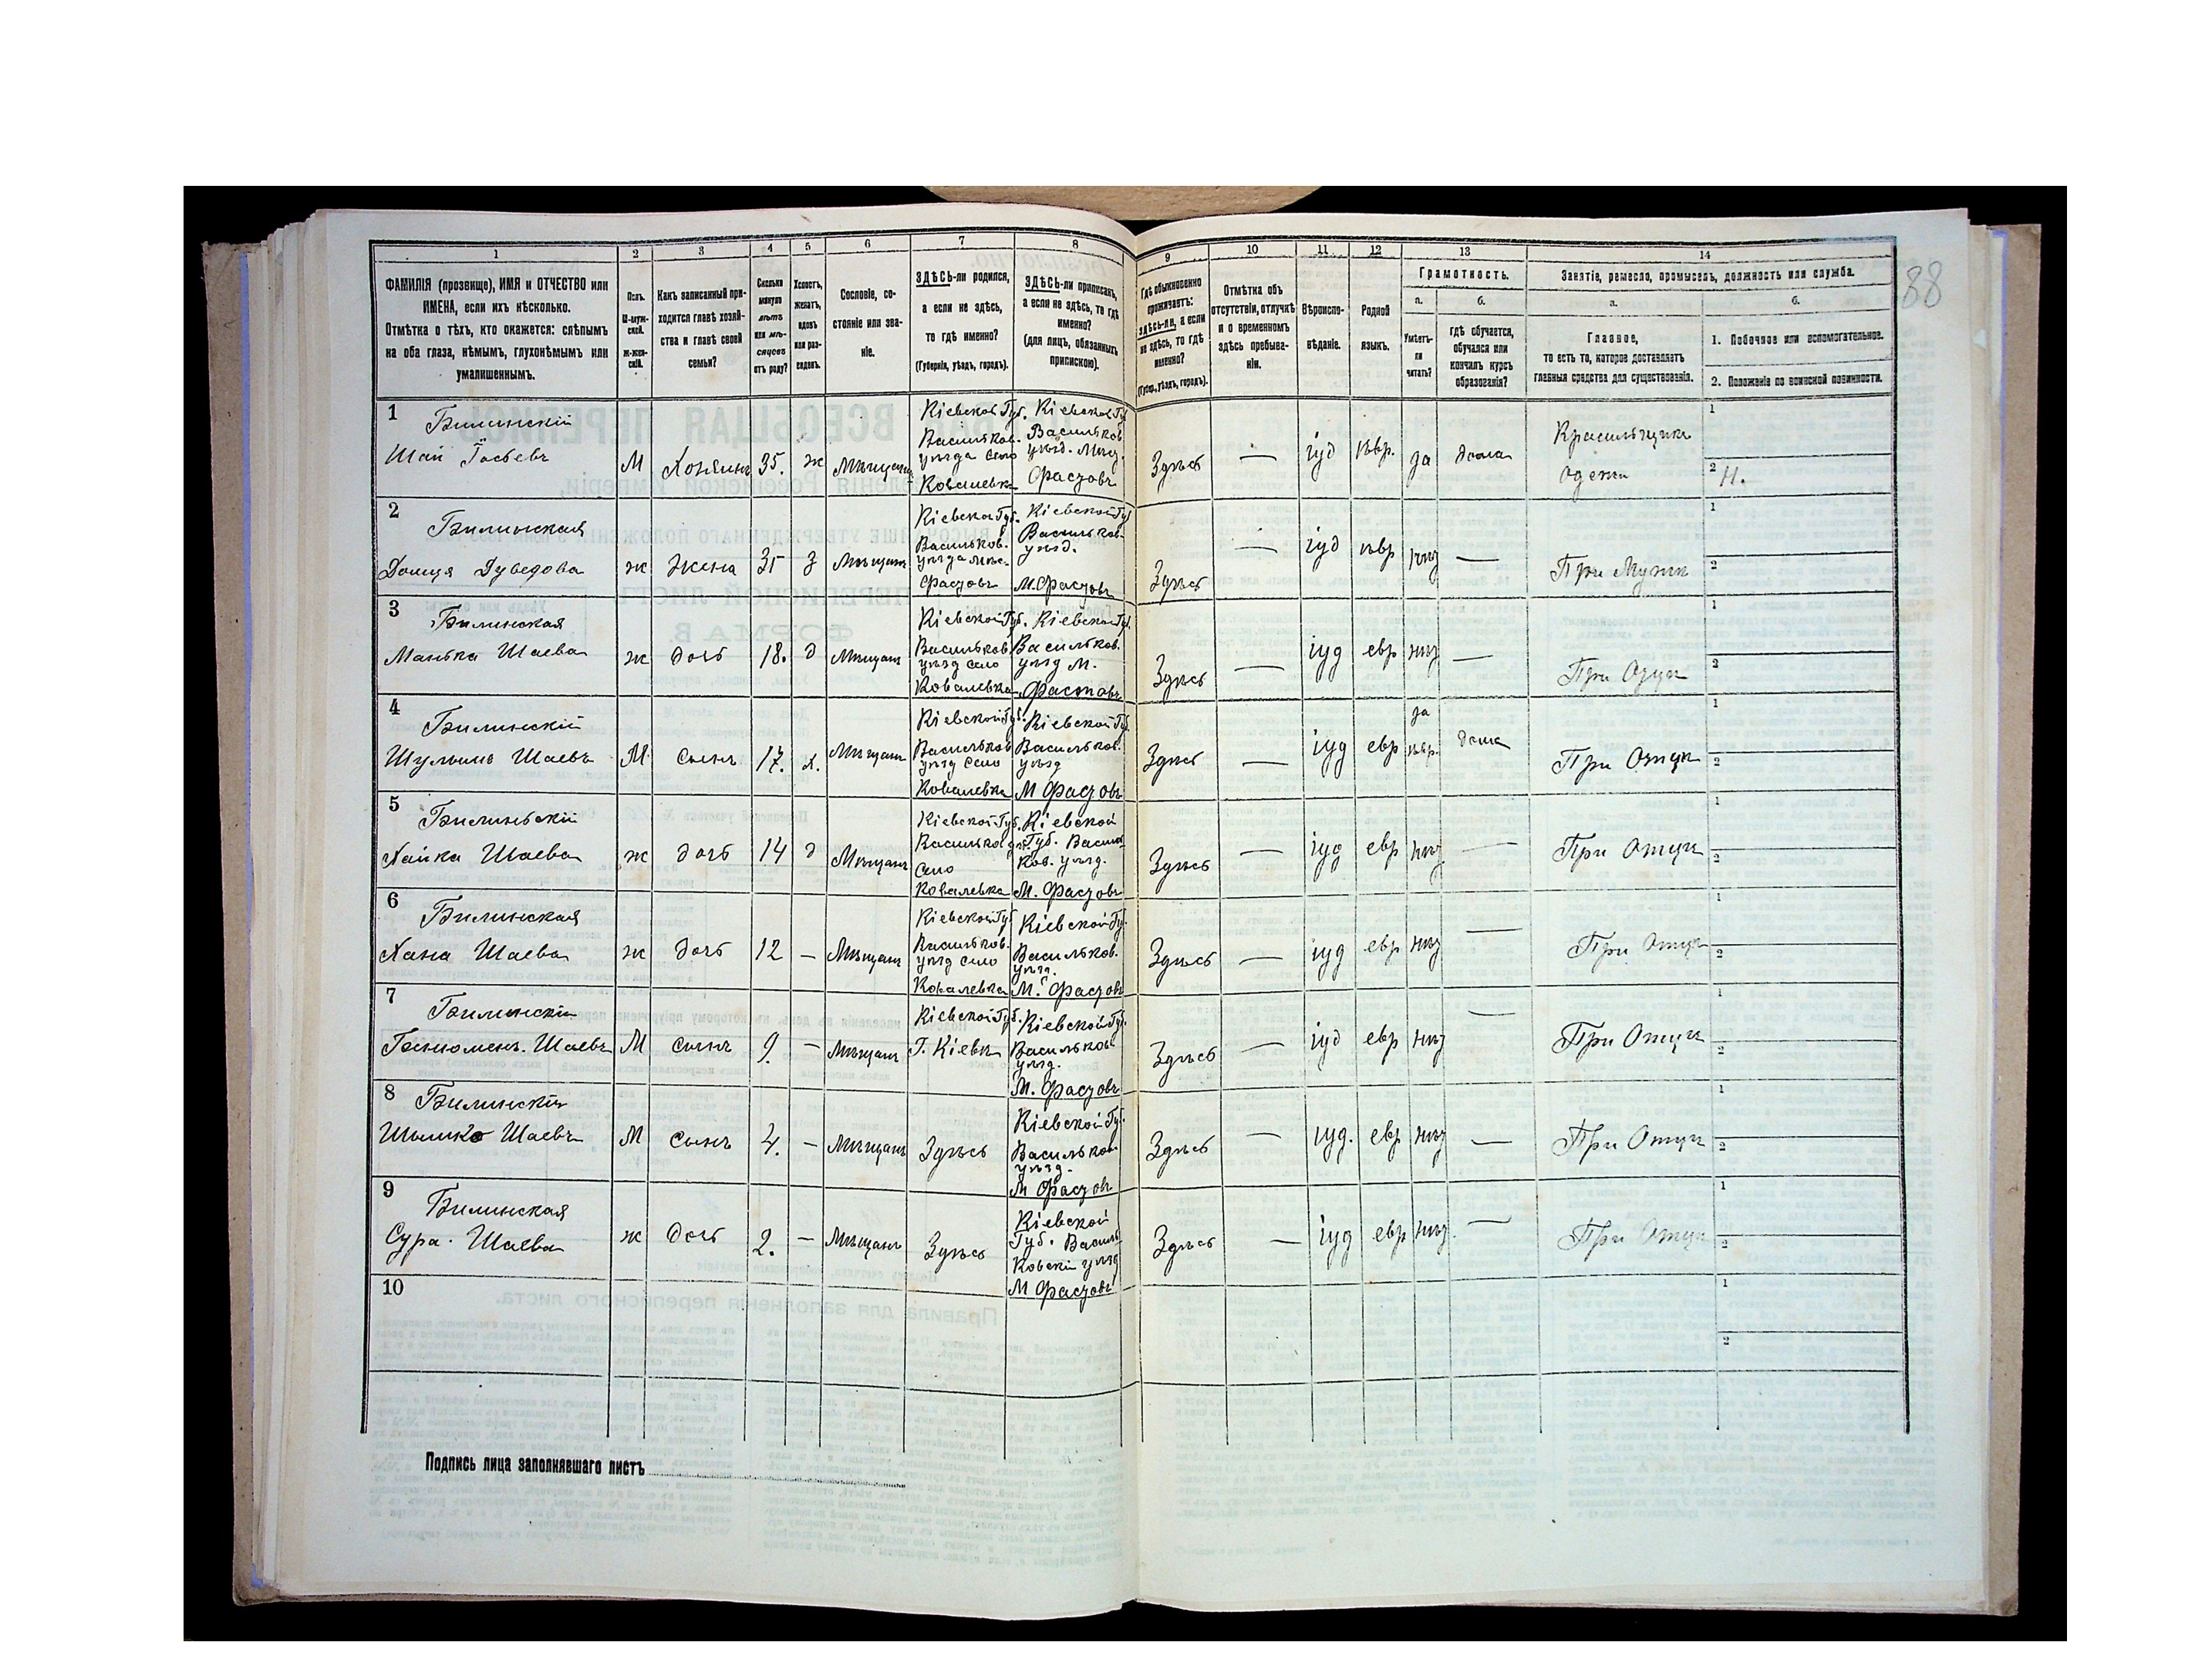 88
1 2 3 4 5 6 7 8 9 10 11 12 13 14
ФАМИЛІЯ (прозвище), ИМЯ и ОТЧЕСТВО или
ИМЕНА, если ихъ нѣсколько.
Отмѣтка о тѣхъ, кто окажется: слѣпымъ
на оба глаза, нѣмымъ, глухонѣмымъ или
умалишеннымъ.
Полъ.
М-муж-
ской.
Ж-жен-
скій.
Какъ записанный при-
ходится главѣ хозяй-
ства и главѣ своей
семьи?
Сколько
минуло
лѣтъ
или мѣ-
сяцевъ
отъ роду?
Холостъ,
женатъ,
вдовъ
или раз-
веденъ.
Сословіе, со-
стояніе или зва-
ніе.
ЗДѢСЬ-ли родился,
а если не здѣсь,
то гдѣ именно?
(Губернія, уѣздъ, городъ).
ЗДѢСЬ-ли приписанъ,
а если не здѣсь, то гдѣ
именно?
(для лицъ, обязанныхъ
припискою).
Гдѣ обыкновенно
проживаетъ:
здѣсь-ли, а если
не здѣсь, то гдѣ
именно?
(Губер., уѣздъ, городъ).
Отмѣтка объ
отсутствіи, отлучкѣ
и о временномъ
здѣсь пребыва-
ніи.
Вѣроиспо-
вѣданіе.
Родной
языкъ.
Грамотность.
а.
Умѣетъ-
ли
читать?
б.
гдѣ обучается,
обучался или
кончилъ курсъ
образованія?
Занятія, ремесло, промыселъ, должность или служба.
а.
Главное,
то есть то, которое доставляетъ
главныя средства для существованія.
б.
1. Побочное или вспомогательное.
2. Положеніе по воинской повинности.
1
Билинскій
Шая
М Хозяинъ 35. ж Мѣщанинъ
Кіевской Губ.
Васильков.
уѣзда село
Ковалевка
Кіевской Губ
Васильков
уѣзд. Мѣст.
Фастовъ
Здѣсь — іуд евр. да дома
Красильщикъ
одежи
1
2 Н.
2
Билинская
Ж Жена 35 З Мѣщан
Кіевской Губ.
Васильков.
уѣзда мѣс.
Фастовъ
Кіевской Губ
Васильков.
уѣзд.
М. Фастовъ
Здѣсь — іуд евр нѣт — При Мужѣ
1
2
3
Билинская
Манька Шаева
ж дочь 18. д Мѣщан
Кіевской Губ.
Васильков.
уѣзд село
Ковалевка
Кіевской Губ.
Васильков.
уѣзд М.
Фастовъ
Здѣсь — іуд евр нѣт — При Отцѣ
1
2
4
Билинскій
Шульимъ Шаевъ
М сынъ 17. х. Мѣщан
Кіевской Губ.
Васильков
уѣзд село
Ковалевка
Кіевской Губ.
Васильков.
уѣзд
М Фастовъ
Здѣсь — іуд евр да евр. дома При Отцѣ
1
2
5
Билиньскій
Хайка Шаева
ж дочь 14 д Мѣщан
Кіевской Губ.
село
Ковалевка
Кіевской
Губ. Василь
ков. уѣзд.
М. Фастовъ
Здѣсь — іуд евр нѣт — При Отцѣ
1
2
6
Билинская
Хана Шаева
ж дочь 12 — Мѣщан
Кіевской Губ
Васильков.
уѣзд село
Ковалевка
Кіевской Губ.
Васильков.
уѣзд.
М. Фастовъ
Здѣсь — іуд евр нѣт — При Отцѣ
1
2
7
Билинскій
Шаевъ
М сынъ 9. — Мѣщан
Кіевской Губ.
Г. Кіевъ
Кіевской Губ.
Васильков
уѣзд.
М. Фастовъ
Здѣсь — іуд евр нѣт — При Отцѣ
1
2
8
Билинскій
Шмилко Шаевъ
М сынъ 4. — Мѣщан Здѣсь
Кіевской Губ.
Васильков.
уѣзд.
М Фастовъ
Здѣсь — іуд. евр нѣт — При Отцѣ
1
2
9
Билинская
Сура. Шаева
ж дочь 2. — Мѣщан Здѣсь
Кіевской
Губ. Василь
ковскій уѣзд
М Фастовъ
Здѣсь — іуд евр нѣт. — При Отцѣ
1
2
10
1
2
Подпись лица заполнявшаго листъ